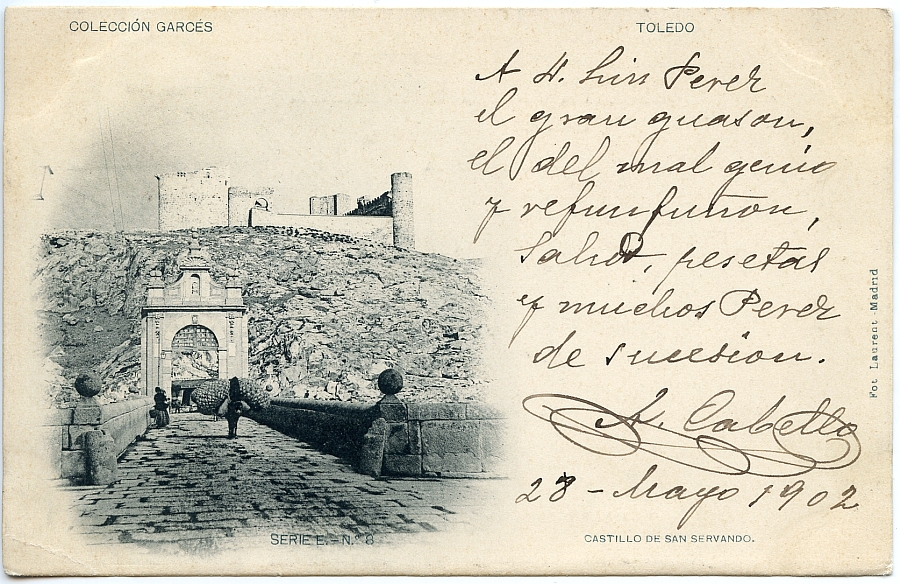 COLECCIÓN GARCÉS
TOLEDO
A D. Luis Perez
el gran guason,
el del mal genio
y refunfuñon,
Salud, pesetas
y muchos Perez
de sucesion.
A. Cabello
28 - Mayo 1902
Fot Laurent - Madrid
SERIE E.- N.º 8
CASTILLO DE SAN SERVANDO.